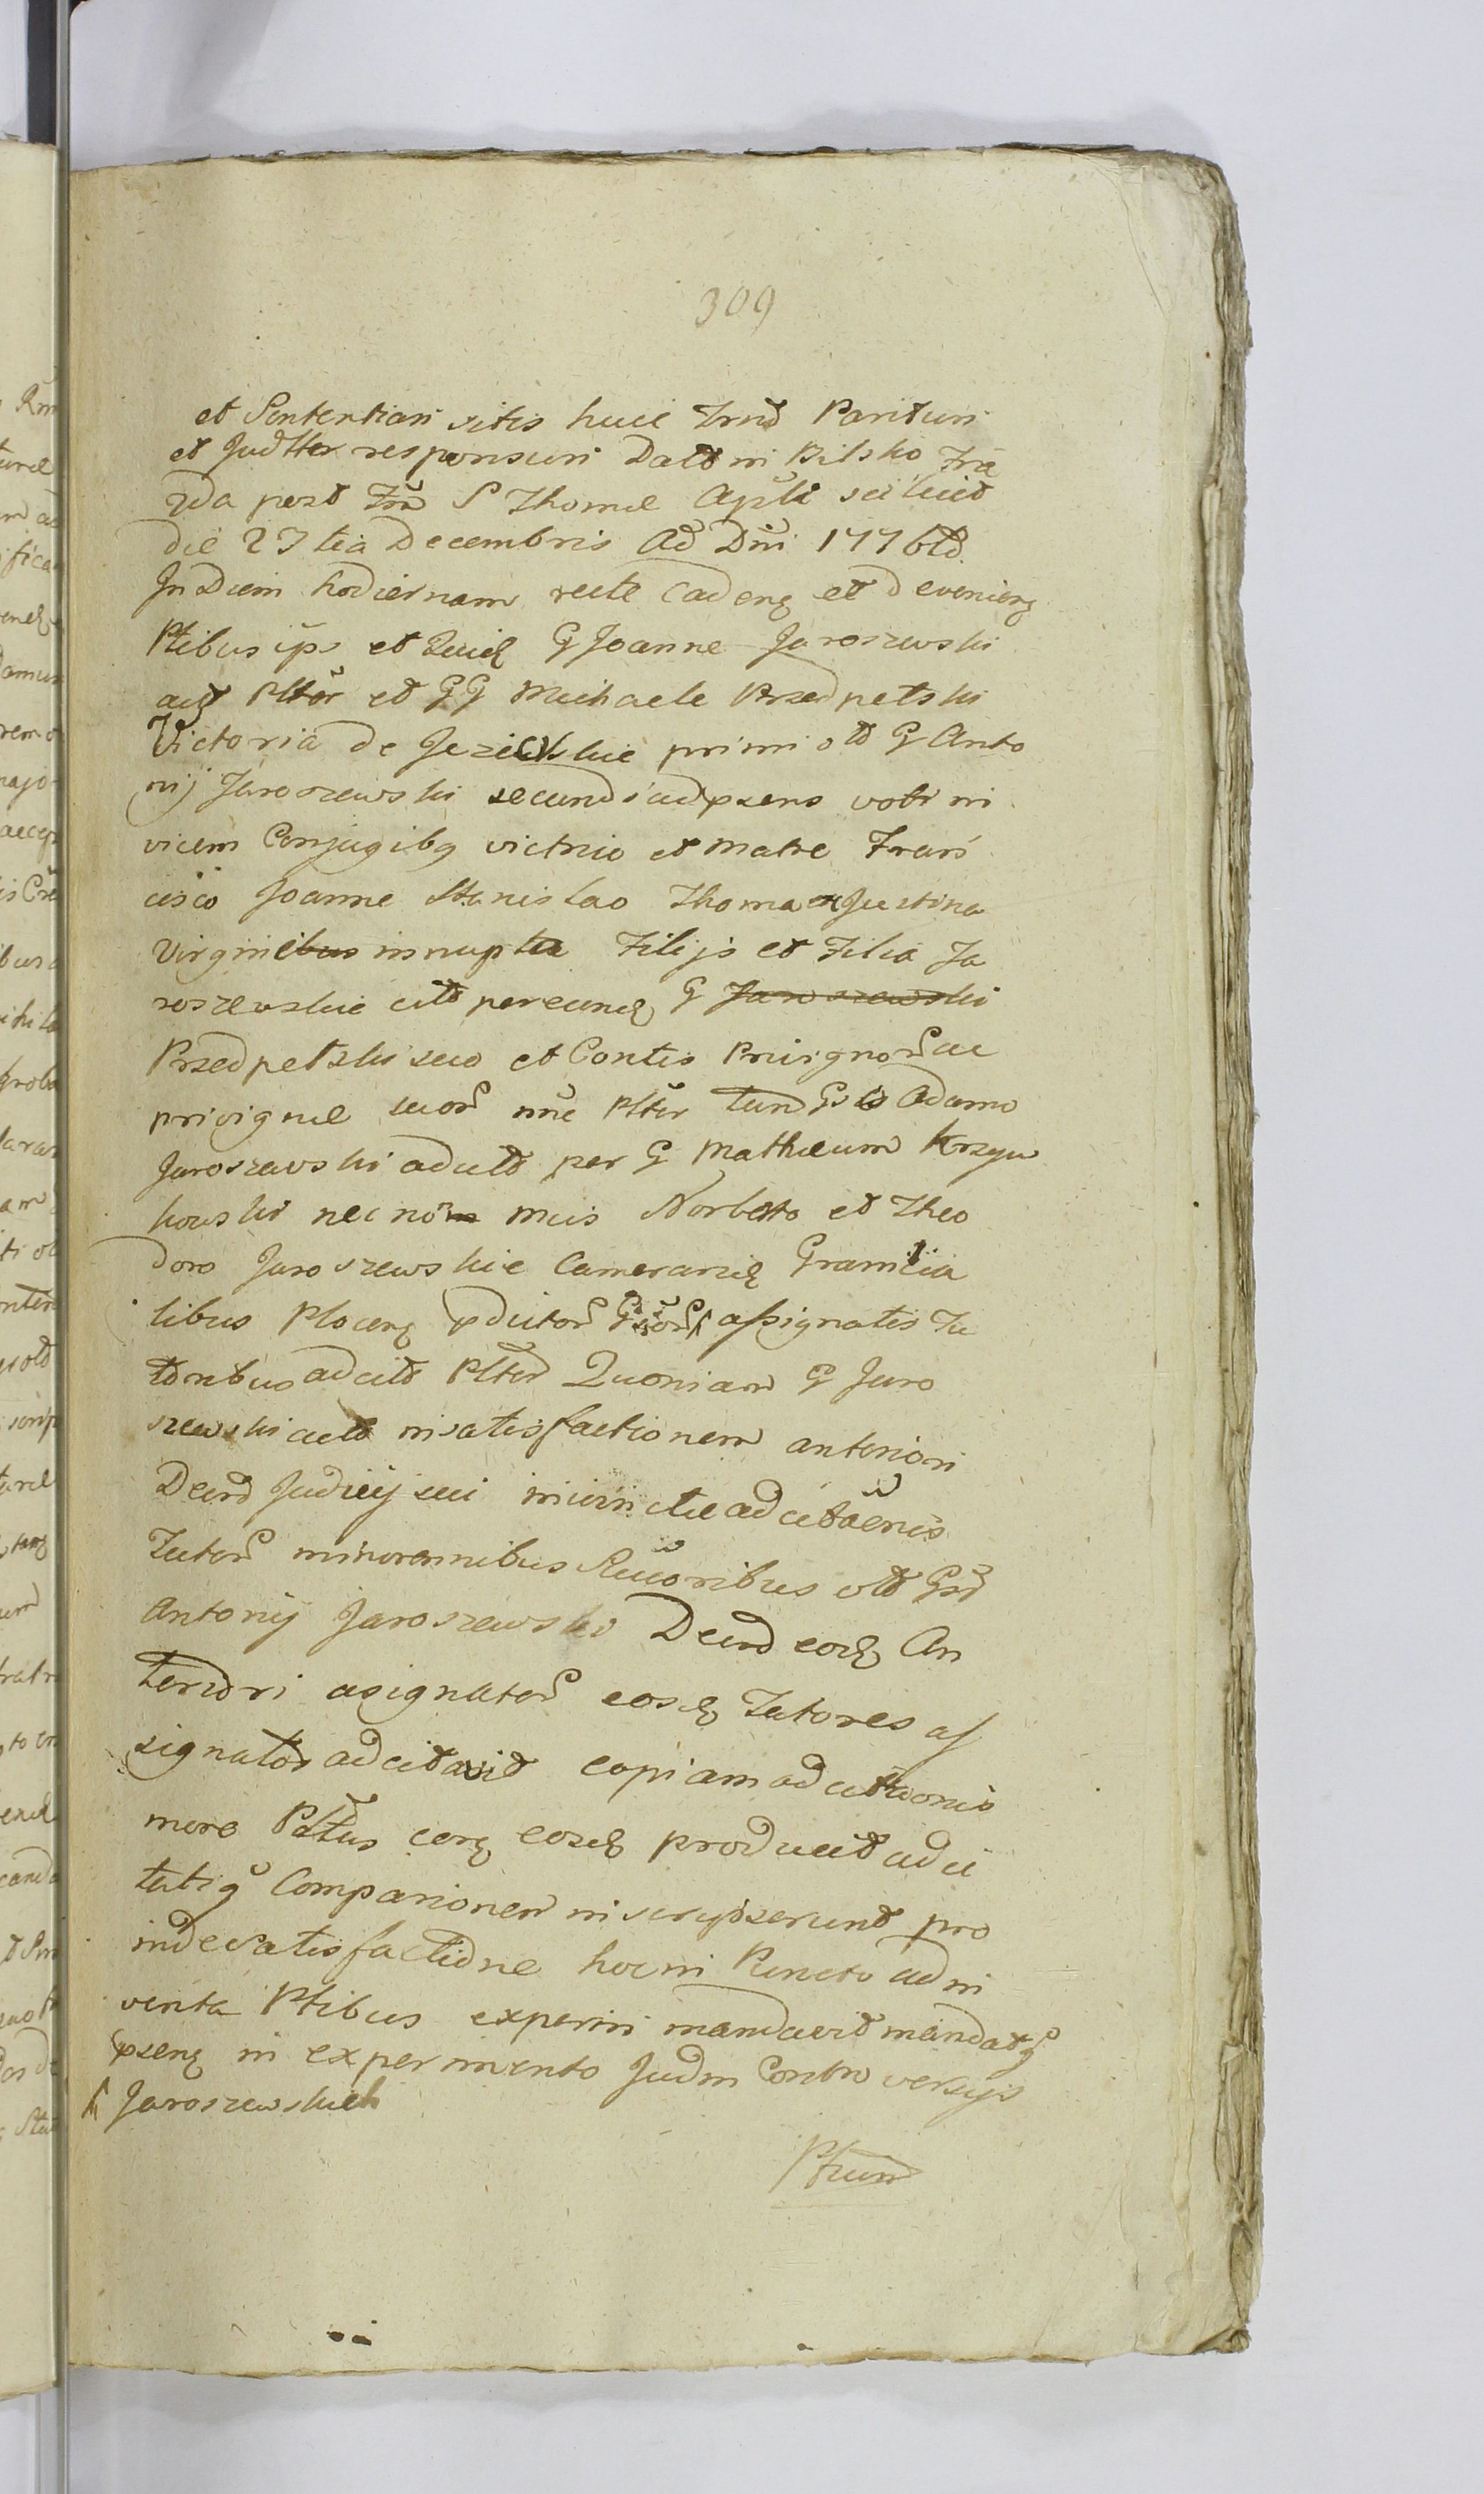 309
et Sententiari sitis huic Trnd Parituri
et Judtter responsuri Datt in Bilsko Fra
2da post Frã S Thomæ Apli scilicet
die 23tia Decembris Ad Dni 1776tto.
In Diem hodiernam recte Cadenę et Devenienę
Ptibus ips et G Joanne Jaroszewski
act Pltor et GG Michaele Przedpełski
Victoria de primi ott G Anto
nij Jaroszewski secundi adpsens voti in
vicem Conjugibq vitrico et Matre Fran
cisco Joanne Stanislao Thoma et Justina
Virgine innupta Filijs et Filia Ja
roszewskie citt per G Jaroszewski
Przedpełski suo et Contis Privignor ac
privignæ suor nne Plter tum Gs Adamo
Jaroszewski adcitt per G Mathæum Krzyw
kowski nec non Mcis Norberto et Theo
doro Jaroszewskie Granitia
libus Plocenę assignatis Tu
toribus adcitt Pltter Quoniam G Jaro
szewski actt in satisfactionem anteriori
Decrd Judicij sui
Tutor minorennibus Succoribus ott Gsi
Antonij Jaroszewski Decrd An
teriori asignator Tutores as
signator adcitavit copiam adcitaonis
more producit adci
tatiq Comparionem in scripserunt pro
inde Satisfactione hoc in Puncto ad in
venta Ptibus experiri mandavit mandatq
psenę in experimento Judm Controversijs
Jaroszewskich
Ptum